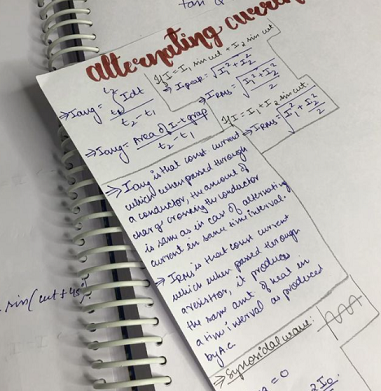 tan Q
alternating current
If I = I₁ sin ωt + I₂ sin ωt
⇒ Ipeak = √(I₁² + I₂²)
⇒ IRMS = √((I₁² + I₂²)/2)
⇒ Iavg = ∫ I dt / t₂ - t₁
If I = I₁ + I₂ sin ωt
⇒ IRMS = √(I₁² + I₂²/2)
⇒ Iavg = Area of I-t grap / t₂ - t₁
⇒ Iavg is that const current
which when passed through
a conductor, the amount of
charge crossing the conductor
is same as in case of alternating
current in same time interval.
⇒ IRMS is that const current
which when passed through
a resistor, it produces
the same amount of heat in
a time interval as produced
by A.C.
sin(ωt + 45°)
⇒ Synosidal wave:
= 0
2I₀